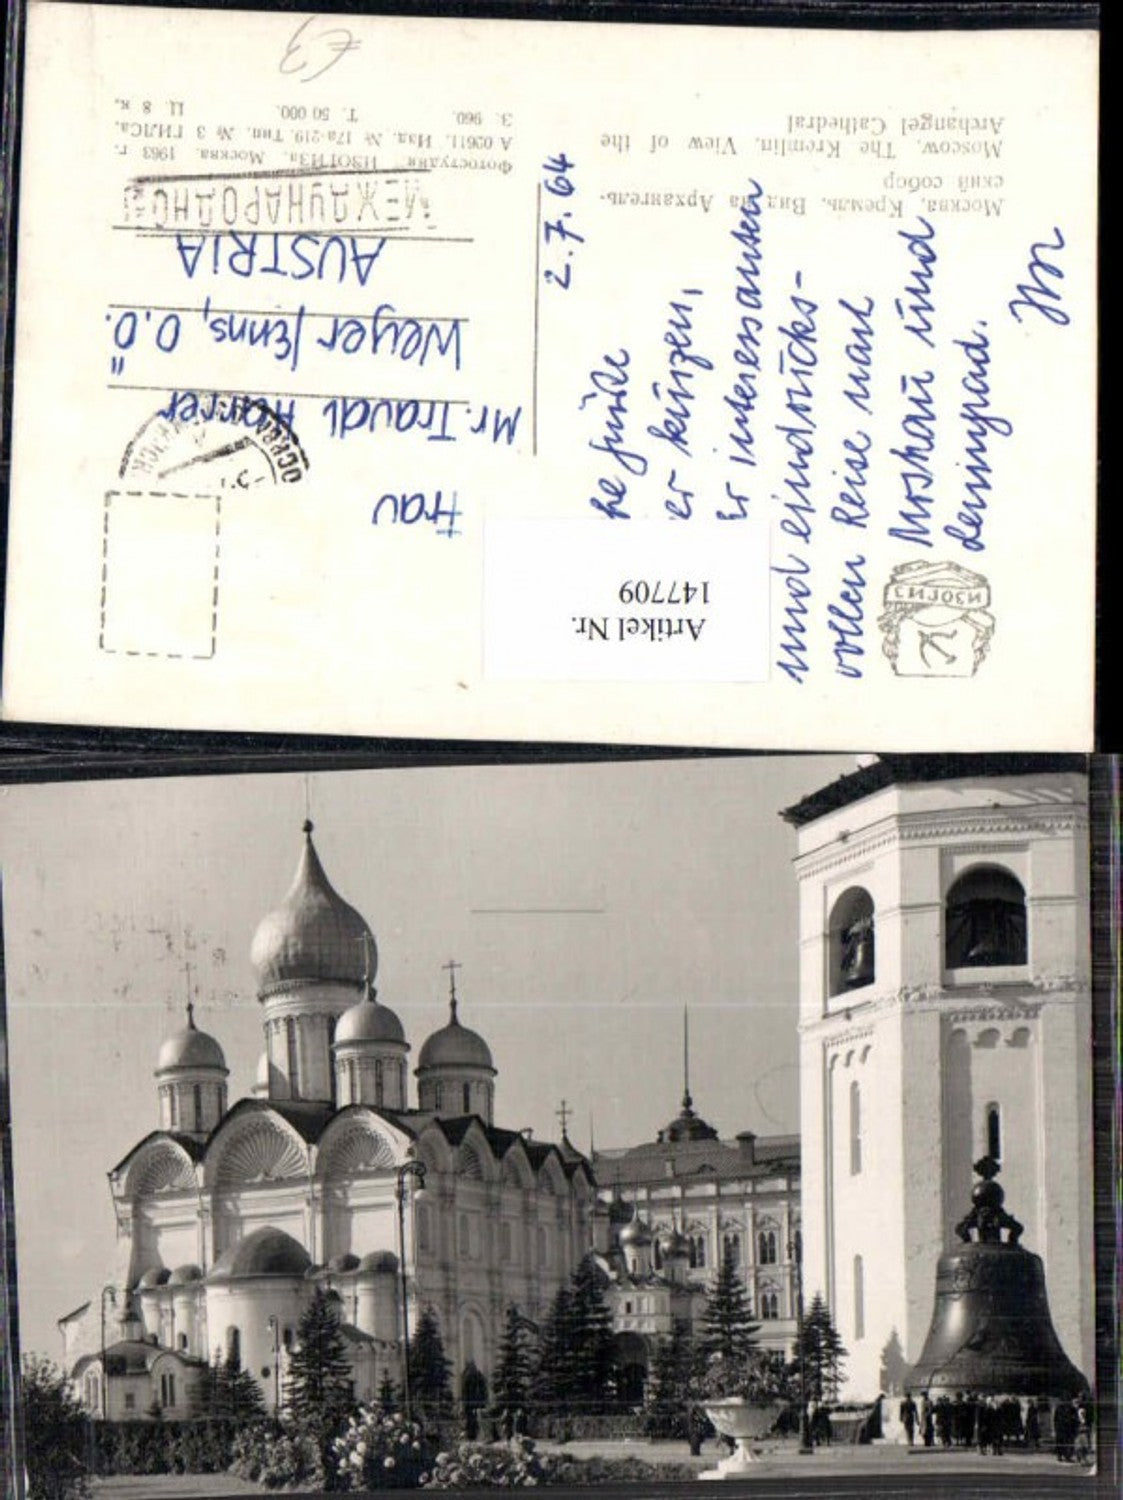 Москва. Кремль. Вид на Архангель-
ский собор
Moscow. The Kremlin. View of the
Archangel Cathedral
Фотостудия ИЗОГИЗа. Москва. 1963 г.
А 02611. Изд. № 17а-219. Тип. № 3 ГИЛСа.
З. 960. Т. 50 000. Ц. 8 к.
€3
МЕЖДУНАРОДНОЕ
ИЗОГИЗ
2. 7. 64
Grüße
kurzen,
interessanten
und eindrucks-
vollen Reise nach
Moskau und
Leningrad.
Frau
Mr. Traudl Harrer
"
Weyer /Enns, O.Ö.
AUSTRIA
Artikel Nr.
147709